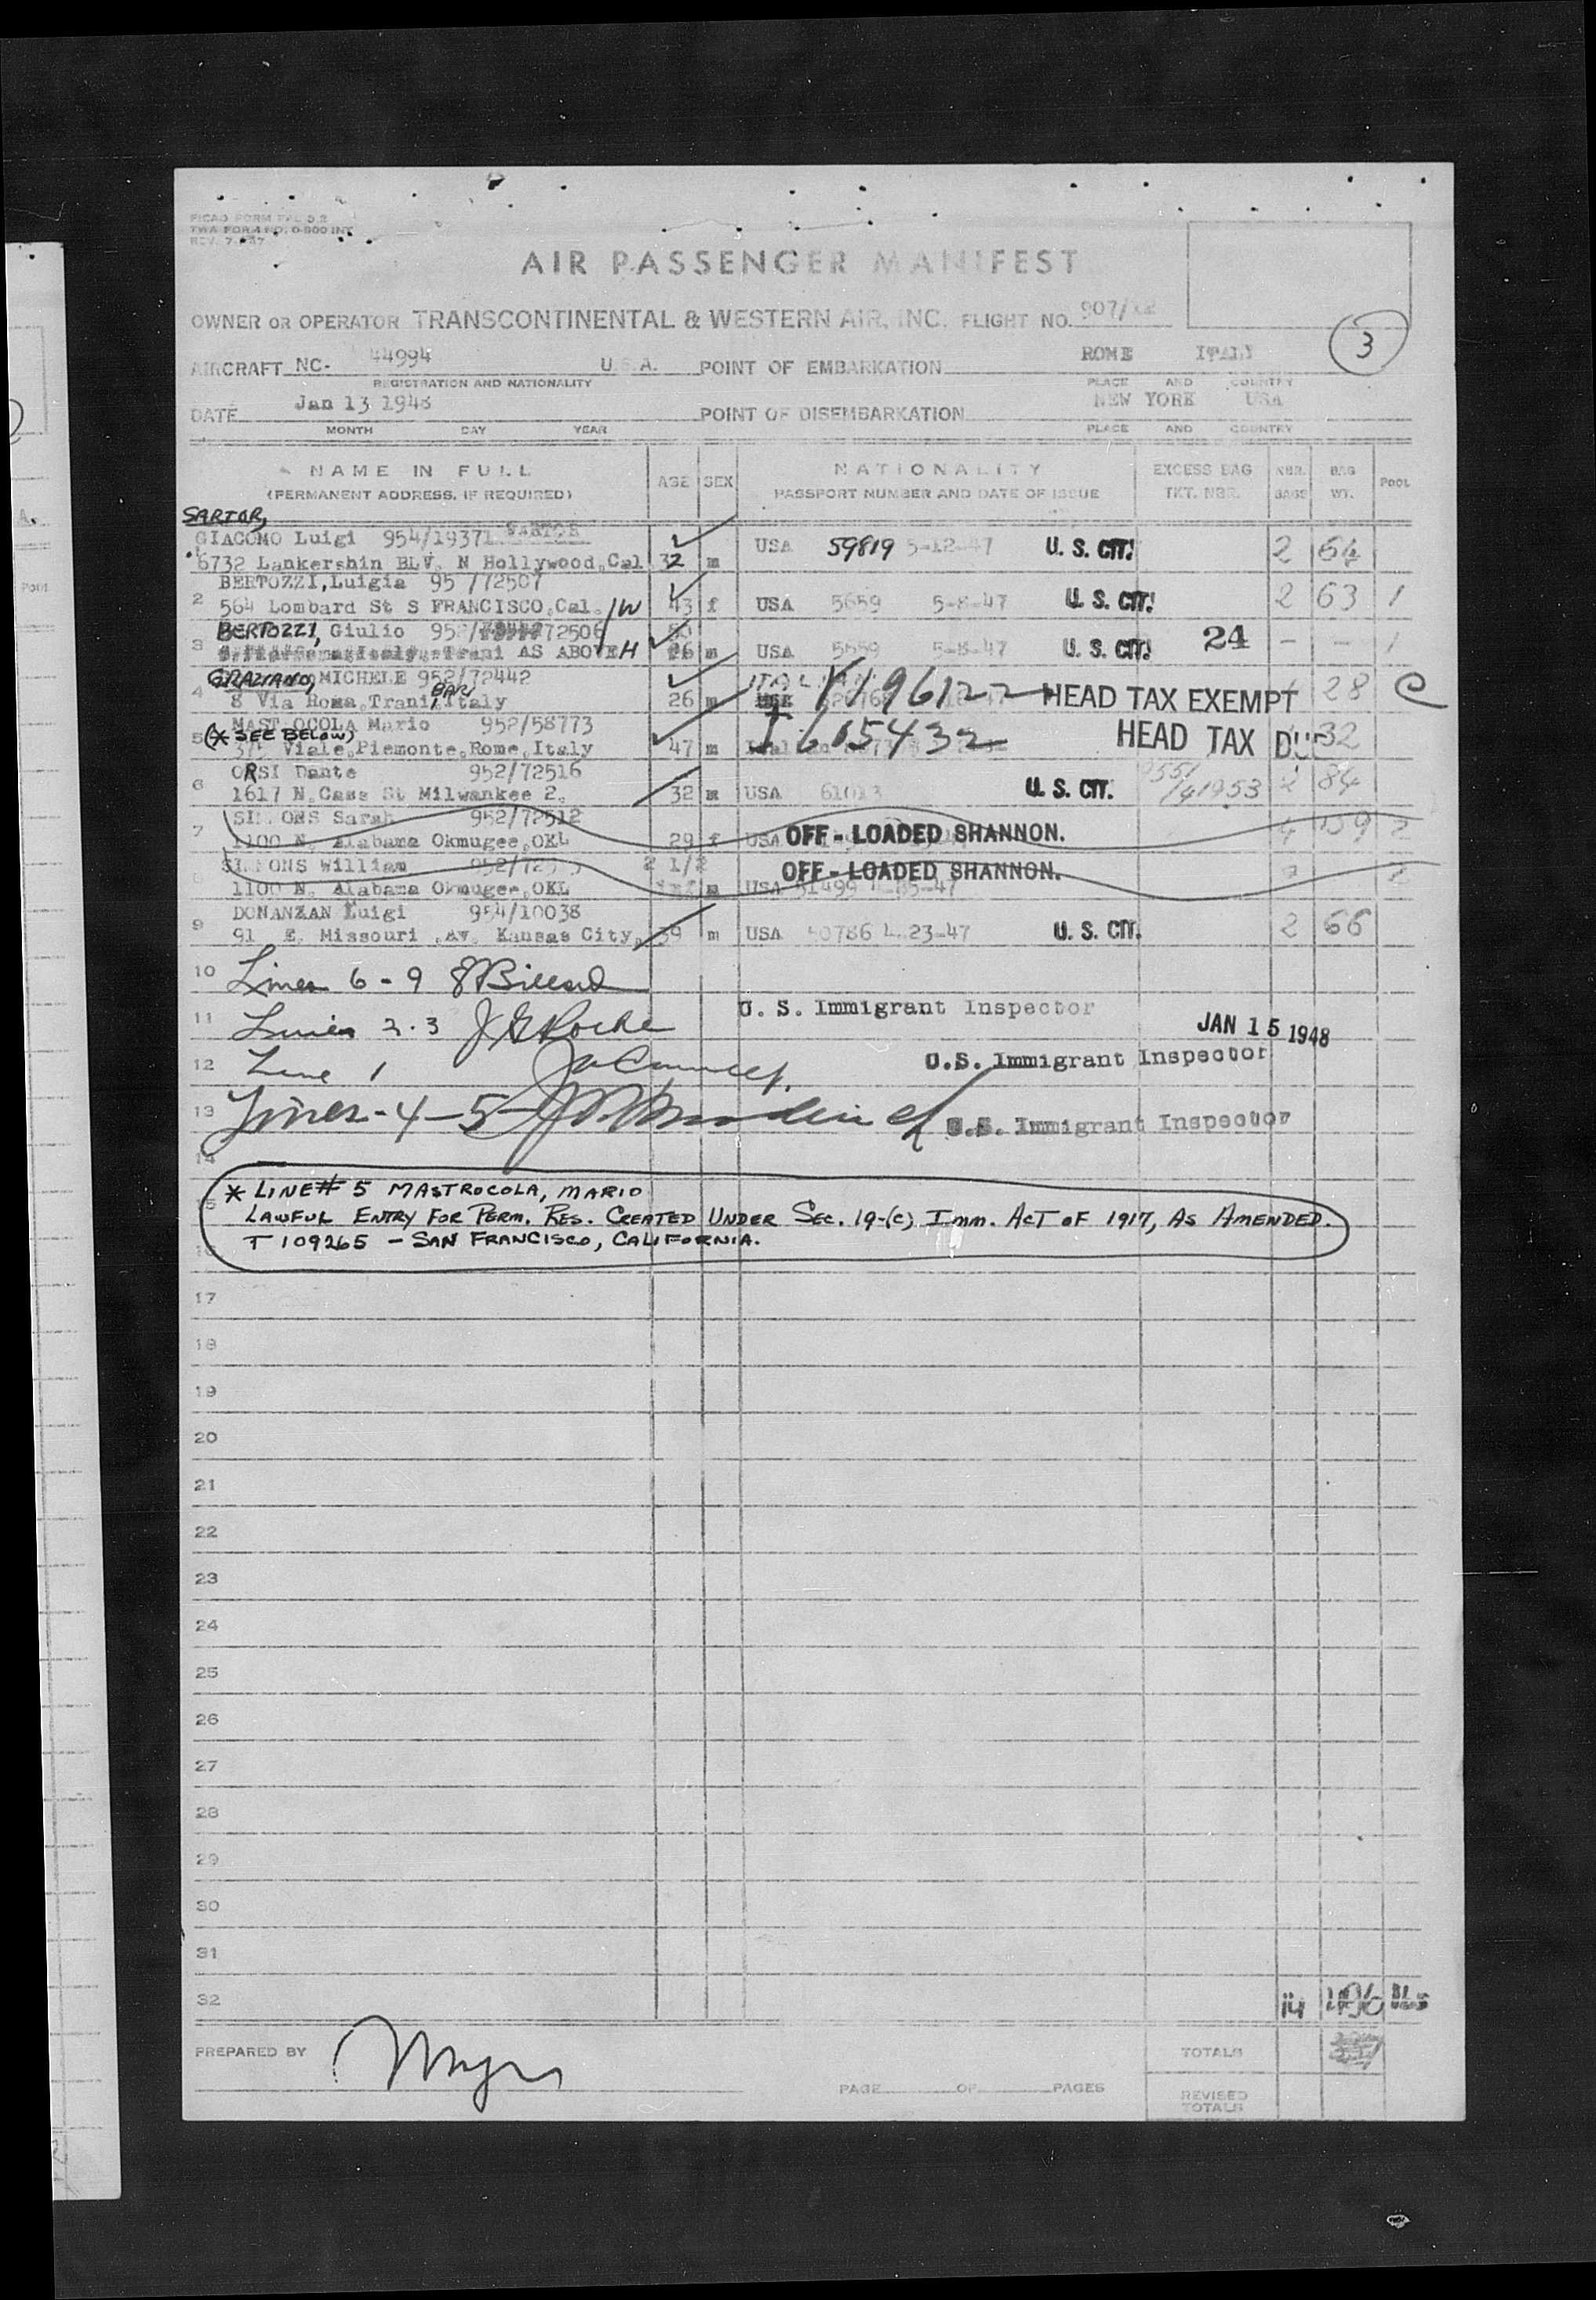 PICAO FORM
TWA FORM NO. 0-800 INT
REV. 7
AIR PASSENGER MANIFEST
OWNER OR OPERATOR TRANSCONTINENTAL & WESTERN AIR, INC. FLIGHT NO. 907/12
3
AIRCRAFT NC- 44994 U.S.A. POINT OF EMBARKATION ROME ITALY
REGISTRATION AND NATIONALITY PLACE AND COUNTRY
DATE Jan 13 1948 POINT OF DISEMBARKATION NEW YORK USA
MONTH DAY YEAR PLACE AND COUNTRY
NAME IN FULL AGE SEX NATIONALITY EXCESS BAG NBR. BAG POOL
(PERMANENT ADDRESS, IF REQUIRED) PASSPORT NUMBER AND DATE OF ISSUE TKT. NBR. BAGS WT.
SARTOR,
GIACOMO Luigi 954/19371 SARTOR
6732 Lankershin BLV. N Hollywood,Cal 32 m USA 59819 5-12-47 U. S. CIT. 2 64
BERTOZZI,Luigia 95 /72507
2 564 Lombard St S FRANCISCO,Cal. /W 43 f USA 5659 5-8-47 U. S. CIT. 2 63 1
BERTOZZI, Giulio 952/72506
3 AS ABOVE H m USA 5659 5-8-47 U. S. CIT. 24 - - 1
GRAZIANO, MICHELE 952/72442
4 8 Via Roma,Trani, BARI Italy 26 m V196122 HEAD TAX EXEMPT 28 C
MAST OCOLA Mario 952/58773
5 (* SEE BELOW) Viale,Piemonte,Rome,Italy 47 m I 615432 HEAD TAX 32
ORSI Dante 952/72516
6 1617 N.Cass St Milwankee 2. 32 m USA 61013 U. S. CIT. 2 84
SIMONS Sarah 952/72512
7 1100 N. Alabama Okmugee,OKL 29 f USA OFF-LOADED SHANNON. 4 159 2
SIMONS William
1100 N. Alabama Okmugee,OKL 2 1/2 m USA 51499 OFF-LOADED SHANNON. 2
DONANZAN Luigi 954/10038
9 91 E. Missouri ,Av. Kansas City, 39 m USA 50786 4.23-47 U. S. CIT. 2 66
10 Lines 6 - 9
U. S. Immigrant Inspector
11 Lines 2.3 J G Roche
JAN 15 1948
12 Line 1
U.S. Immigrant Inspector
13 Lines-4-5-
U.S. Immigrant Inspector
14
* LINE# 5 MASTROCOLA, MARIO
15 LAWFUL ENTRY FOR PERM. RES. CREATED UNDER SEC. 19-(C) IMM. ACT OF 1917, AS AMENDED.
16 T 109265 - SAN FRANCISCO, CALIFORNIA.
17
18
19
20
21
22
23
24
25
26
27
28
29
30
31
32 14 496 lbs
PREPARED BY TOTALS
PAGE OF PAGES
REVISED
TOTALS